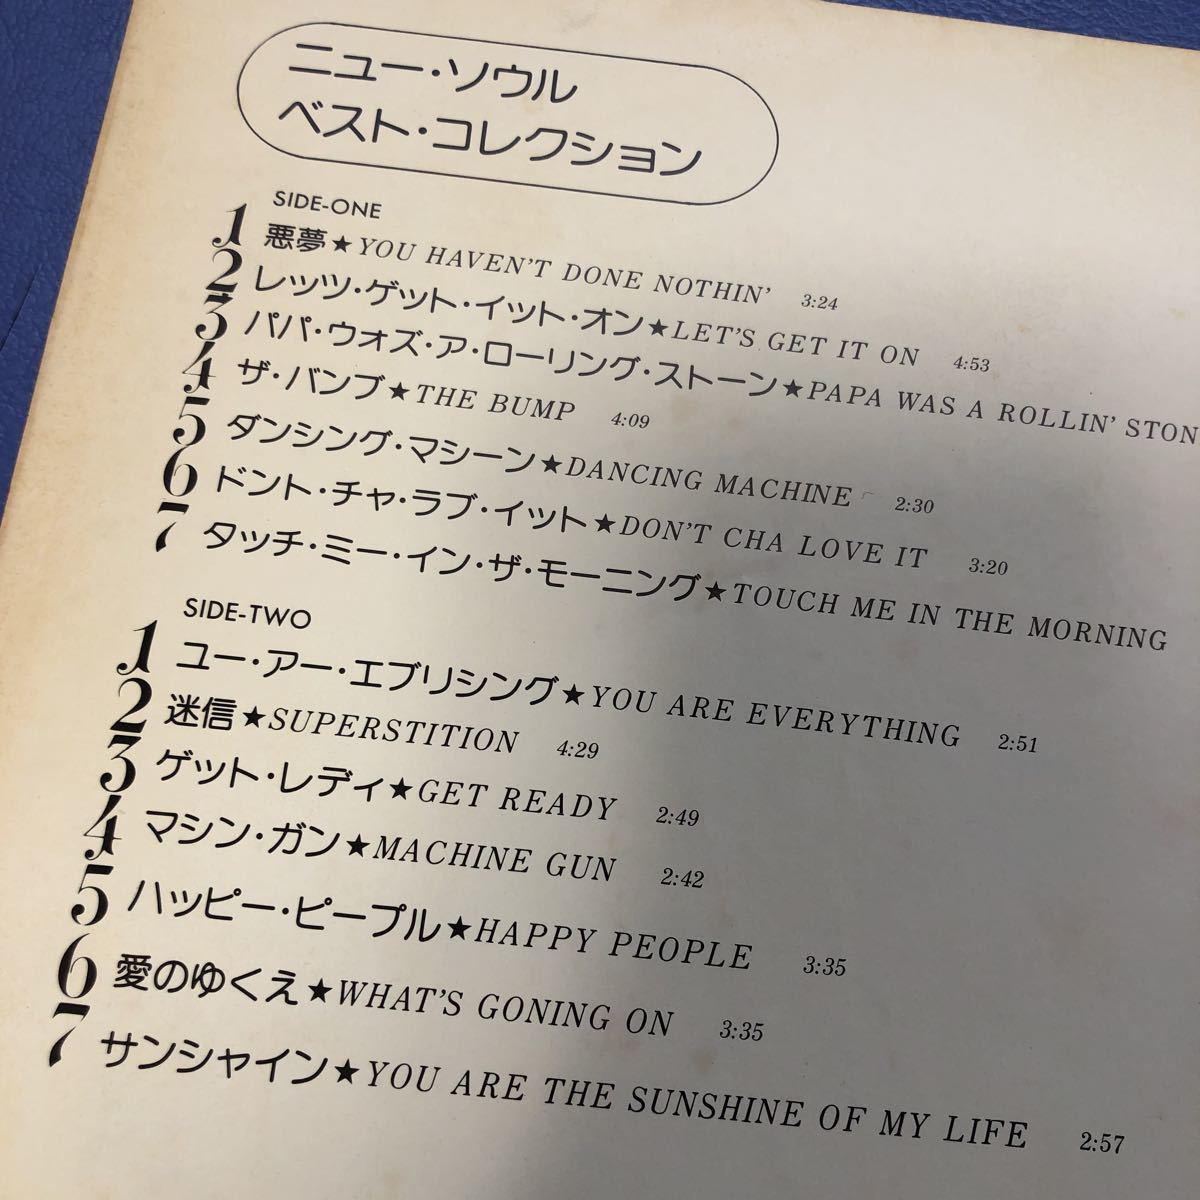 ニュー・ソウル
ベスト・コレクション
SIDE-ONE
1 悪夢★YOU HAVEN'T DONE NOTHIN' 3:24
2 レッツ・ゲット・イット・オン★LET'S GET IT ON 4:53
3 パパ・ウォズ・ア・ローリング・ストーン★PAPA WAS A ROLLIN' STON
4 ザ・バンプ★THE BUMP 4:09
5 ダンシング・マシーン★DANCING MACHINE 2:30
6 ドント・チャ・ラブ・イット★DON'T CHA LOVE IT 3:20
7 タッチ・ミー・イン・ザ・モーニング★TOUCH ME IN THE MORNING
SIDE-TWO
1 ユー・アー・エブリシング★YOU ARE EVERYTHING 2:51
2 迷信★SUPERSTITION 4:29
3 ゲット・レディ★GET READY 2:49
4 マシン・ガン★MACHINE GUN 2:42
5 ハッピー・ピープル★HAPPY PEOPLE 3:35
6 愛のゆくえ★WHAT'S GONING ON 3:35
7 サンシャイン★YOU ARE THE SUNSHINE OF MY LIFE 2:57